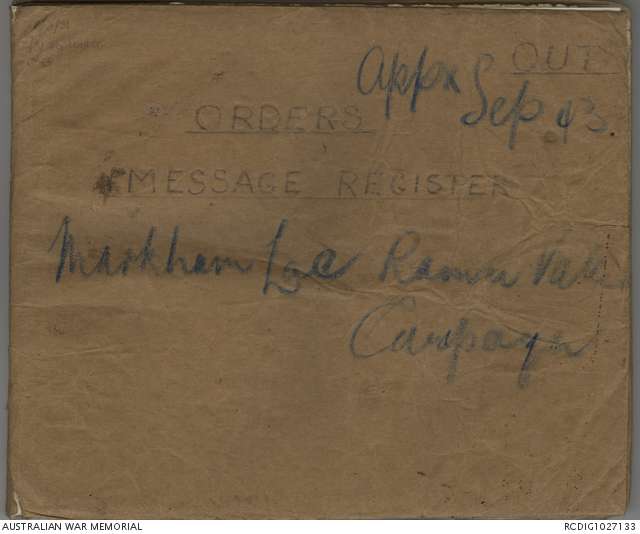 OUT
Appx
Sep 43
ORDERS
MESSAGE REGISTER
Markham Lae Ramu
Campaign
AUSTRALIAN WAR MEMORIAL
RCDIG1027133